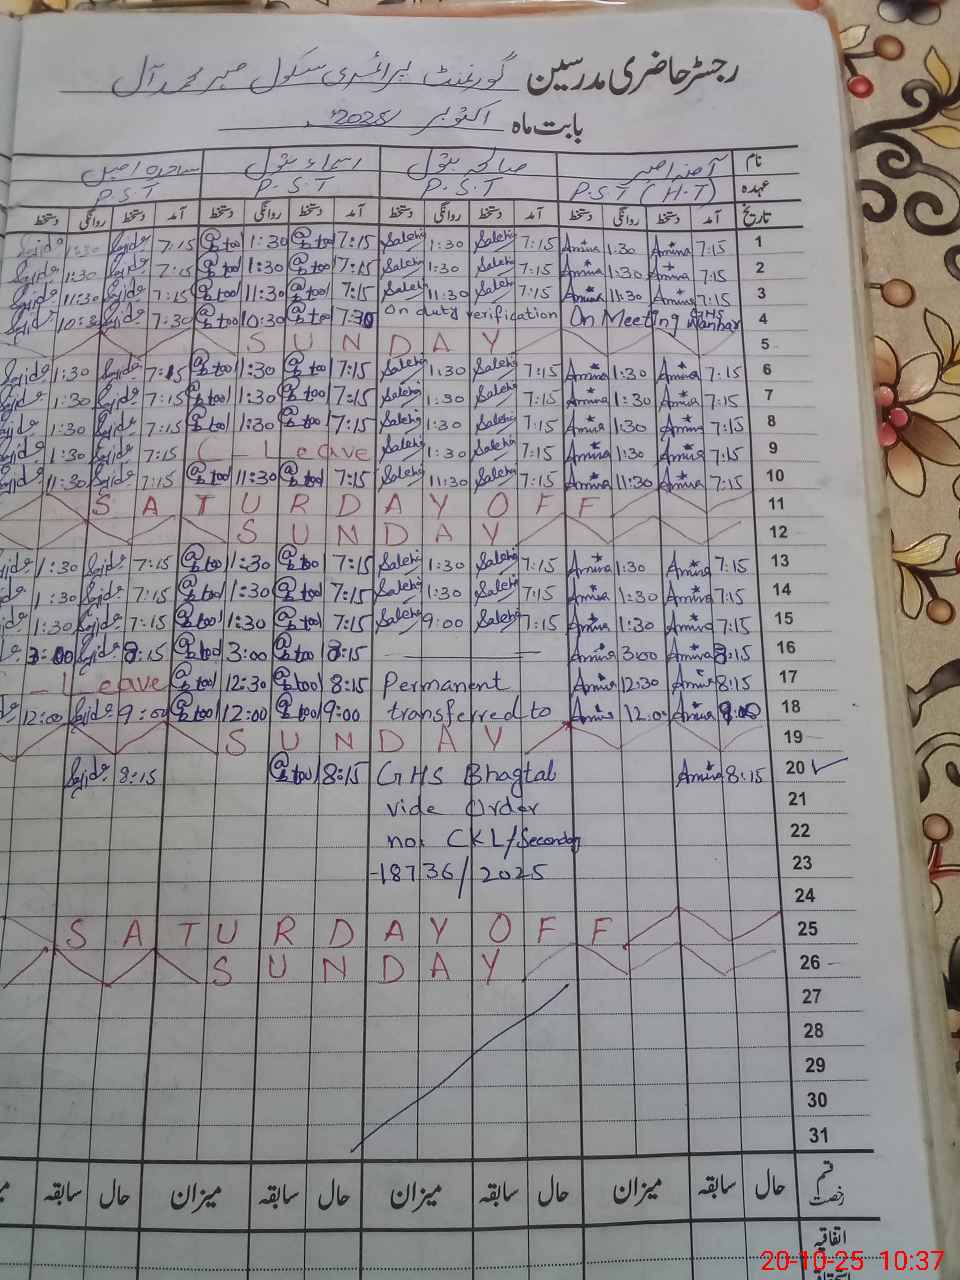 رجسٹر حاضری مدرسین گورنمنٹ پرائمری سکول مہر محمد آل
بابت ماہ اکتوبر 2025ء
نام آمنہ صالحہ بتول بتول ساجدہ
عہدہ P.S.T (H.T) P.S.T P.S.T P.S.T
تاریخ آمد دستخط روانگی دستخط آمد دستخط روانگی دستخط آمد دستخط روانگی دستخط آمد دستخط روانگی دستخط
1 7:15 Amina 1:30 Amina 7:15 Saleha 1:30 Saleha 7:15 1:30 7:15 Sajida 1:30 Sajida
2 7:15 Amina 1:30 Amina 7:15 Saleha 1:30 Saleha 7:15 1:30 7:15 Sajida 1:30 Sajida
3 7:15 Amina 11:30 Amina 7:15 Saleha 11:30 Saleha 7:15 11:30 7:15 Sajida 11:30 Sajida
4 On Meeting GHS On duty verification 7:30 10:30 7:30 Sajida 10:30 Sajida
5 SUNDAY
6 7:15 Amina 1:30 Amina 7:15 Saleha 1:30 Saleha 7:15 1:30 7:15 Sajida 1:30 Sajida
7 7:15 Amina 1:30 Amina 7:15 Saleha 1:30 Saleha 7:15 1:30 7:15 Sajida 1:30 Sajida
8 7:15 Amina 1:30 Amina 7:15 Saleha 1:30 Saleha 7:15 1:30 7:15 Sajida 1:30 Sajida
9 7:15 Amina 1:30 Amina 7:15 Saleha 1:30 Saleha C - Leave 7:15 Sajida 1:30 Sajida
10 7:15 Amina 11:30 Amina 7:15 Saleha 11:30 Saleha 7:15 11:30 7:15 Sajida 11:30 Sajida
11 SATURDAY OFF
12 SUNDAY
13 7:15 Amina 1:30 Amina 7:15 Saleha 1:30 Saleha 7:15 1:30 7:15 Sajida 1:30 Sajida
14 7:15 Amina 1:30 Amina 7:15 Saleha 1:30 Saleha 7:15 1:30 7:15 Sajida 1:30 Sajida
15 7:15 Amina 1:30 Amina 7:15 Saleha 9:00 Saleha 7:15 1:30 7:15 Sajida 1:30 Sajida
16 8:15 Amina 3:00 Amina 8:15 3:00 8:15 Sajida 3:00
17 8:15 Amina 12:30 Amina Permanent 8:15 12:30 - Leave
18 9:00 Amina 12:00 Amina transferred to 9:00 12:00 9:00 Sajida 12:00
19 SUNDAY
20 8:15 Amina GHS Bhagtal 8:15 8:15 Sajida
21 vide Order
22 no. CKL/Secondary
23 -18736/2025
24
25 SATURDAY OFF
26 SUNDAY
27
28
29
30
31
قسم رخصت حال سابقہ میزان حال سابقہ میزان حال سابقہ میزان حال سابقہ
اتفاقیہ
20-10-25 10:37